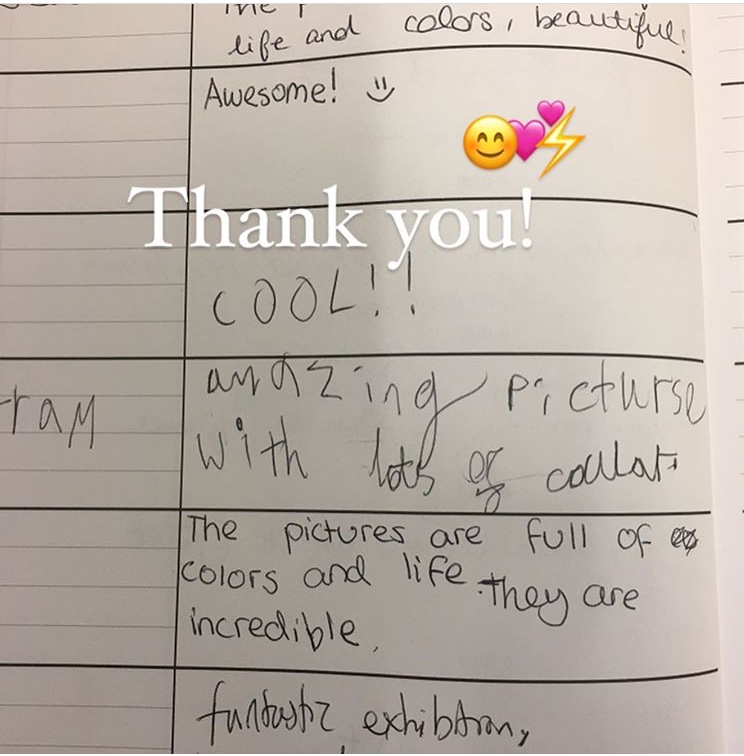 life and colors, beautiful!
Awesome!
Thank you!
COOL!!
amazing picturse
with lots of
The pictures are full of
colors and life. they are
incredible.
fantastic exhibition,